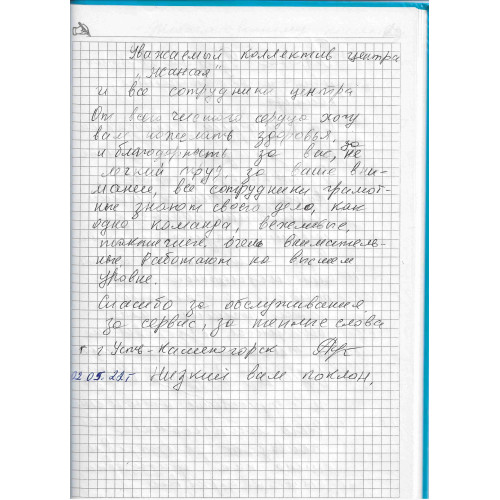 Уважаемый коллектив центра
"Жансая"
и все сотрудники центра
От всего чистого сердца хочу
вам пожелать здоровья,
и благодарность за вас, за не
легкий труд, за ваше вни-
мание, все сотрудники грамот-
ные знают своего дело, как
одно команда, вежливые,
очень вниматель-
ные, работают на высшем
уровне.
Спасибо за обслуживания
за сервис, за теплые слова
г Усть-Каменогорск
02.05.22г Низкий вам поклон,